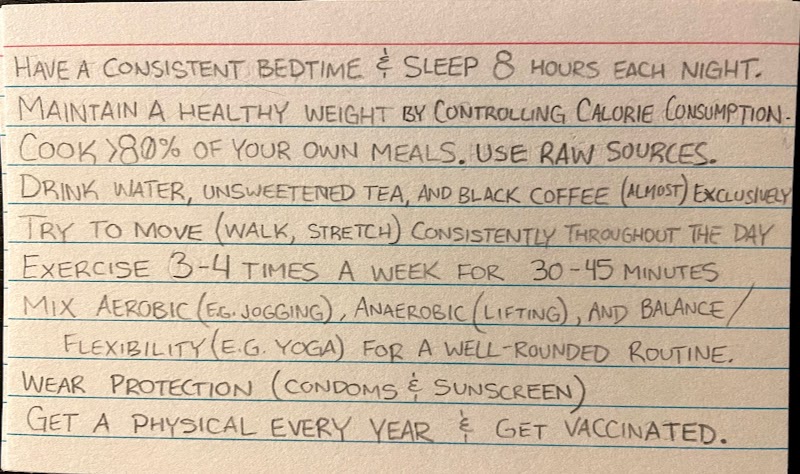 HAVE A CONSISTENT BEDTIME & SLEEP 8 HOURS EACH NIGHT.
MAINTAIN A HEALTHY WEIGHT BY CONTROLLING CALORIE CONSUMPTION.
COOK >80% OF YOUR OWN MEALS. USE RAW SOURCES.
DRINK WATER, UNSWEETENED TEA, AND BLACK COFFEE (ALMOST) EXCLUSIVELY
TRY TO MOVE (WALK, STRETCH) CONSISTENTLY THROUGHOUT THE DAY
EXERCISE 3-4 TIMES A WEEK FOR 30-45 MINUTES
MIX AEROBIC (E.G. JOGGING), ANAEROBIC (LIFTING), AND BALANCE/
FLEXIBILITY (E.G. YOGA) FOR A WELL-ROUNDED ROUTINE.
WEAR PROTECTION (CONDOMS & SUNSCREEN)
GET A PHYSICAL EVERY YEAR & GET VACCINATED.